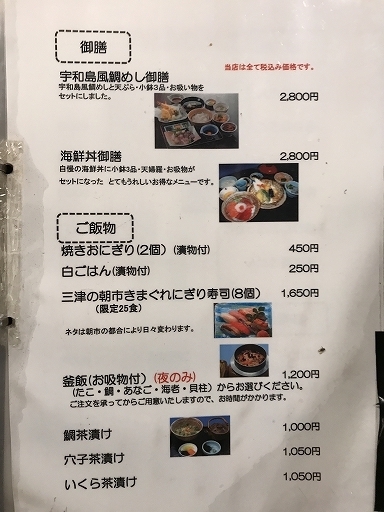 御膳
当店は全て税込み価格です。
宇和島風鯛めし御膳
宇和島風鯛めしと天ぷら・小鉢3品・お吸い物を
セットにしました。 2,800円
海鮮丼御膳 2,800円
自慢の海鮮丼に小鉢3品・天婦羅・お吸物が
セットになった とてもうれしいお得なメニューです。
ご飯物
焼きおにぎり(2個)(漬物付) 450円
白ごはん(漬物付) 250円
三津の朝市きまぐれにぎり寿司(8個) 1,650円
(限定25食)
ネタは朝市の都合により日々変わります。
釜飯(お吸物付)(夜のみ) 1,200円
(たこ・鯛・あなご・海老・貝柱)からお選びください。
ご注文を承ってからご用意いたしますので、お時間がかかります。
鯛茶漬け 1,000円
穴子茶漬け 1,050円
いくら茶漬け 1,050円